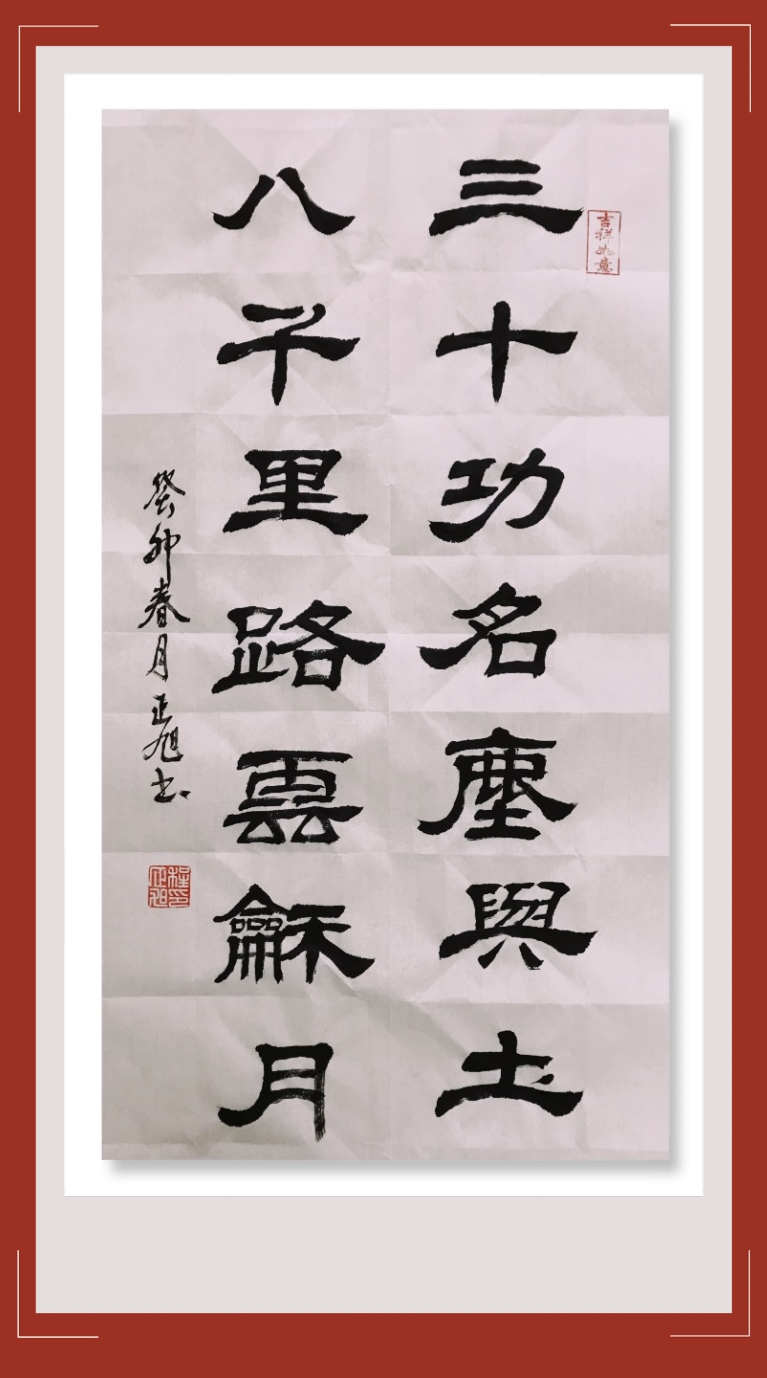 吉祥如意
三十功名塵與土
八千里路雲龢月
癸卯春月正旭书
程印正旭